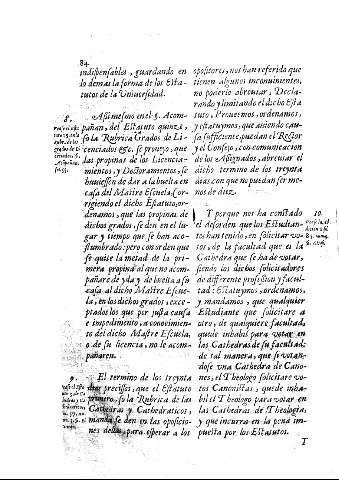 84
indispensables, guardando en
lo demas la forma de los Esta-
tutos de la Universidad.
8.
Asimesmo en el §. Acom-
pañan, del Estatuto quinze,
so la Rubrica Grados de Li-
cenciados &c. se proveyo, que
las propinas de los Licencia-
mientos, y Doctoramientos, se
huuiessen de dar a la buelta en
casa del Maitre Escuela, cor-
rigiendo el dicho Estatuto, or-
denamos, que las propinas de
dichos grados, se den en el lu-
gar y tiempo que se han aco-
stumbrado: pero con orden que
se quite la metad de la pri-
mera propina al que no acom-
pañare de yda y de buelta a su
casa al dicho Maitre Escue-
la, en los dichos grados, exce-
ptados los que por justa causa
e impedimento, a conocimien-
to del dicho Maitre Escuela,
o de su licencia, no le acom-
pañaren.
9.
El termino de los treynta
dias precissos, que el Estatuto
primero, so la Rubrica de las
Cathedras y Cathedraticos,
manda se den en las oposicio-
nes dellas, para esperar a los
opositores, nos han referida que
tienen algunos inconuinientes,
no poderlo abreuiar, Decla-
rando y limitando el dicho Esta
tuto, Proueemos, ordenamos,
y estatuymos, que auiendo cau-
sa suficiente, puedan el Rector
y el Consejo, con comunicacion
de los Asignados, abreuiar el
dicho termino de los treynta
dias con que no puedan ser me-
nos de diez.
10.
Y porque nos ha constado
el desorden que los Estudian-
tes han tenido, en solicitar vo-
tos, de la facultad que es la
Cathedra que se ha de votar,
siendo los dichos solicitadores
de differente profession y facul-
tad: Estatuymos, ordenamos,
y mandamos, que qualquier
Estudiante que solicitare a
otro, de qualquiera facultad,
quede inhabil para votar en
las Cathedras de su facultad;
de tal manera, que se votan-
dose vna Cathedra de Cano-
nes, el Theologo solicitare vo-
tos Canonistas, quede inha-
bil el Theologo para votar en
las Cathedras de Theologia,
y que incurra en la pena im-
puesta por los Estatutos.
T